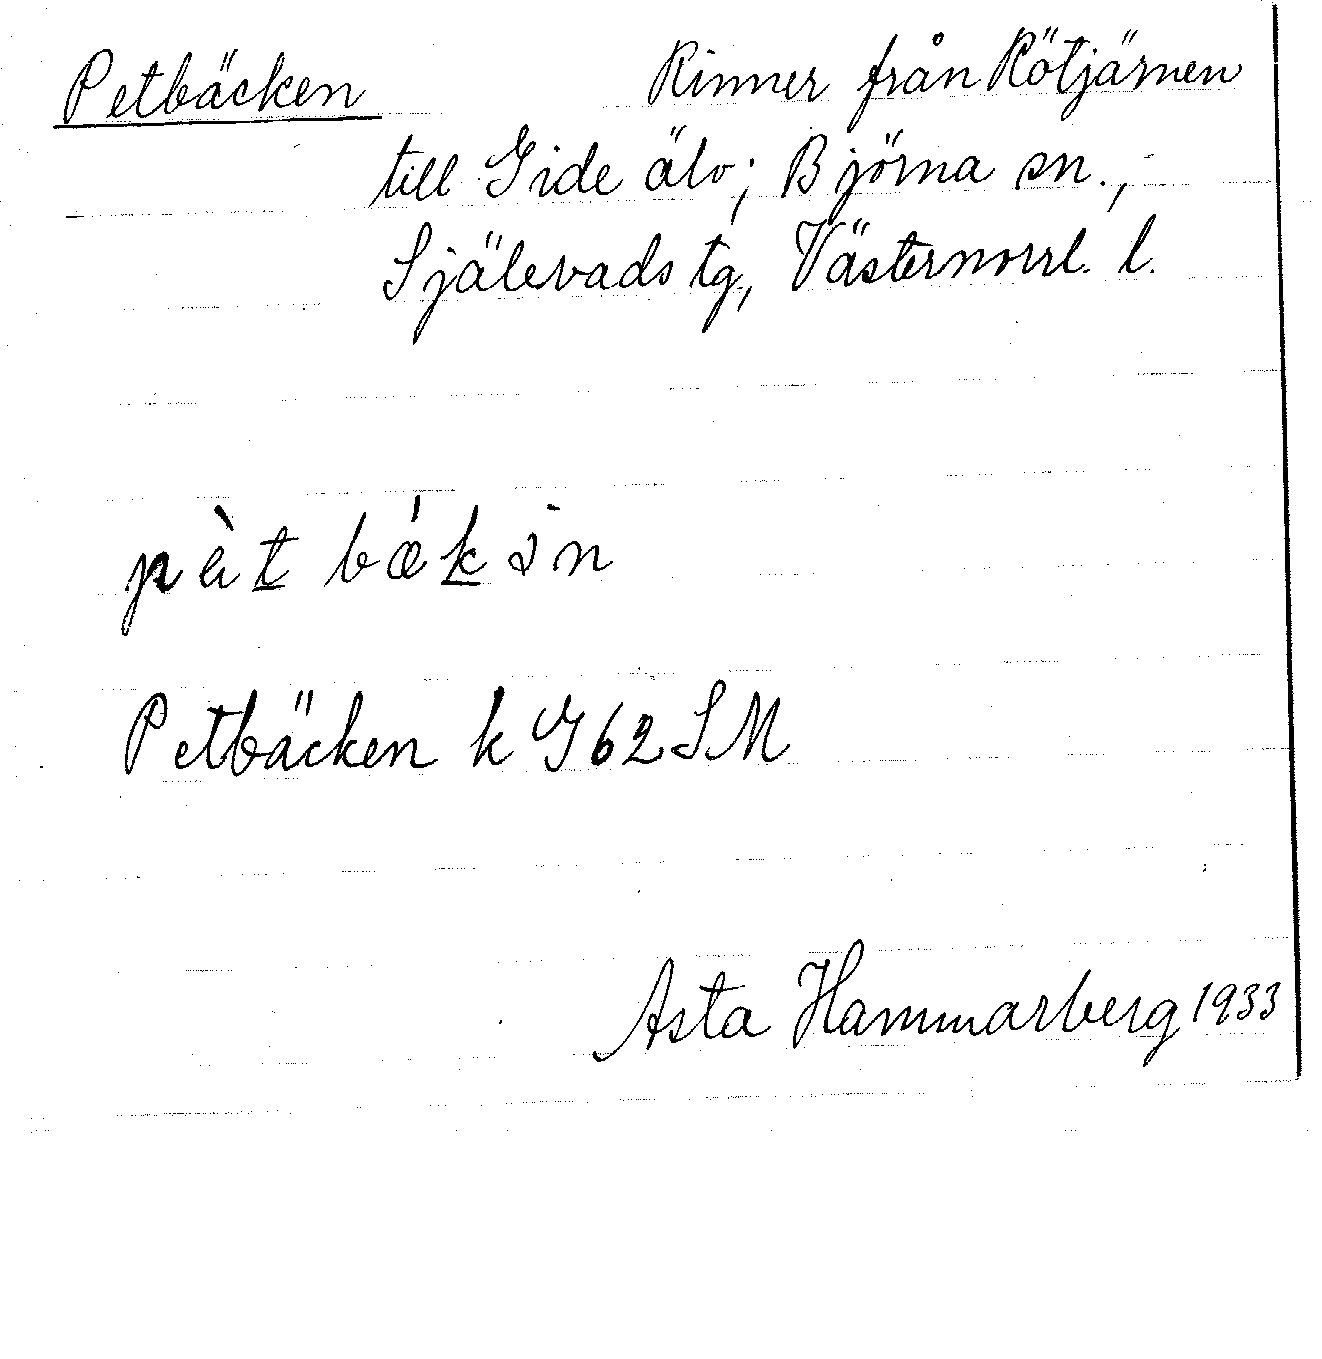 Petbäcken Rinner från Rötjärnen
till Gide älv; Björna sn.,
Själevads tg, Västernorrl. l.
pèt bækən
Petbäcken k G62SM
Asta Hammarberg 1933